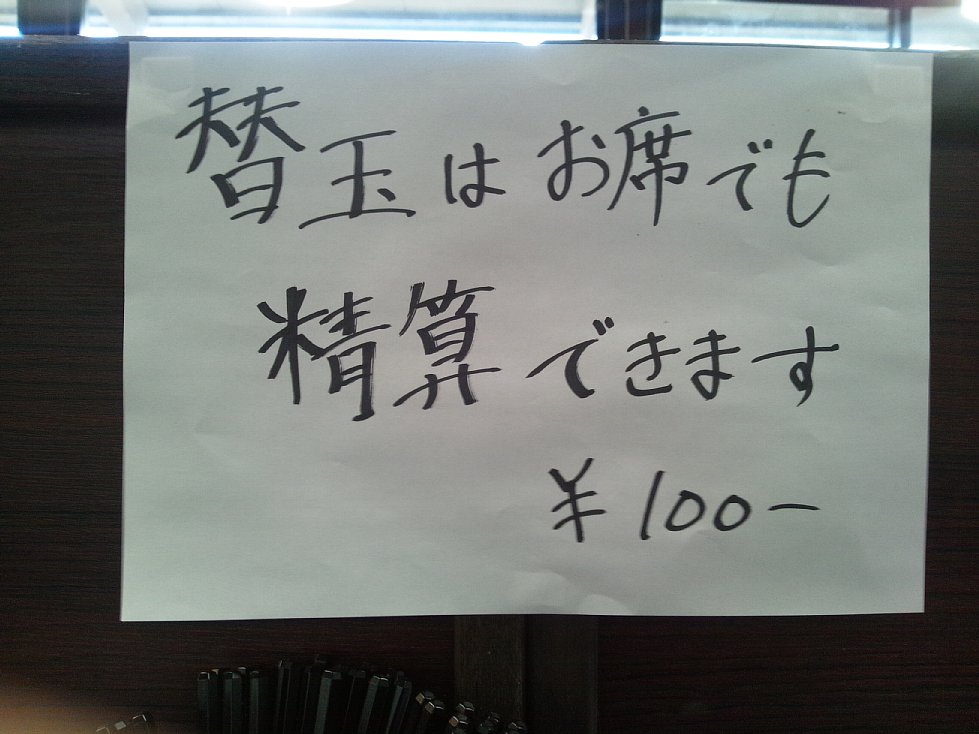 替玉はお席でも
精算できます
¥100-